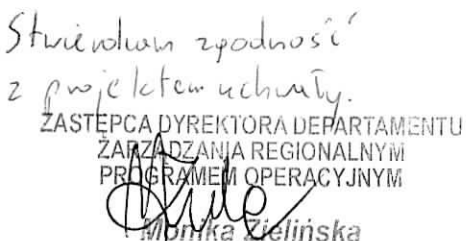 Stwierdzam zgodność
z projektem uchwały.
ZASTĘPCA DYREKTORA DEPARTAMENTU
ZARZĄDZANIA REGIONALNYM
PROGRAMEM OPERACYJNYM
Monika Zielińska